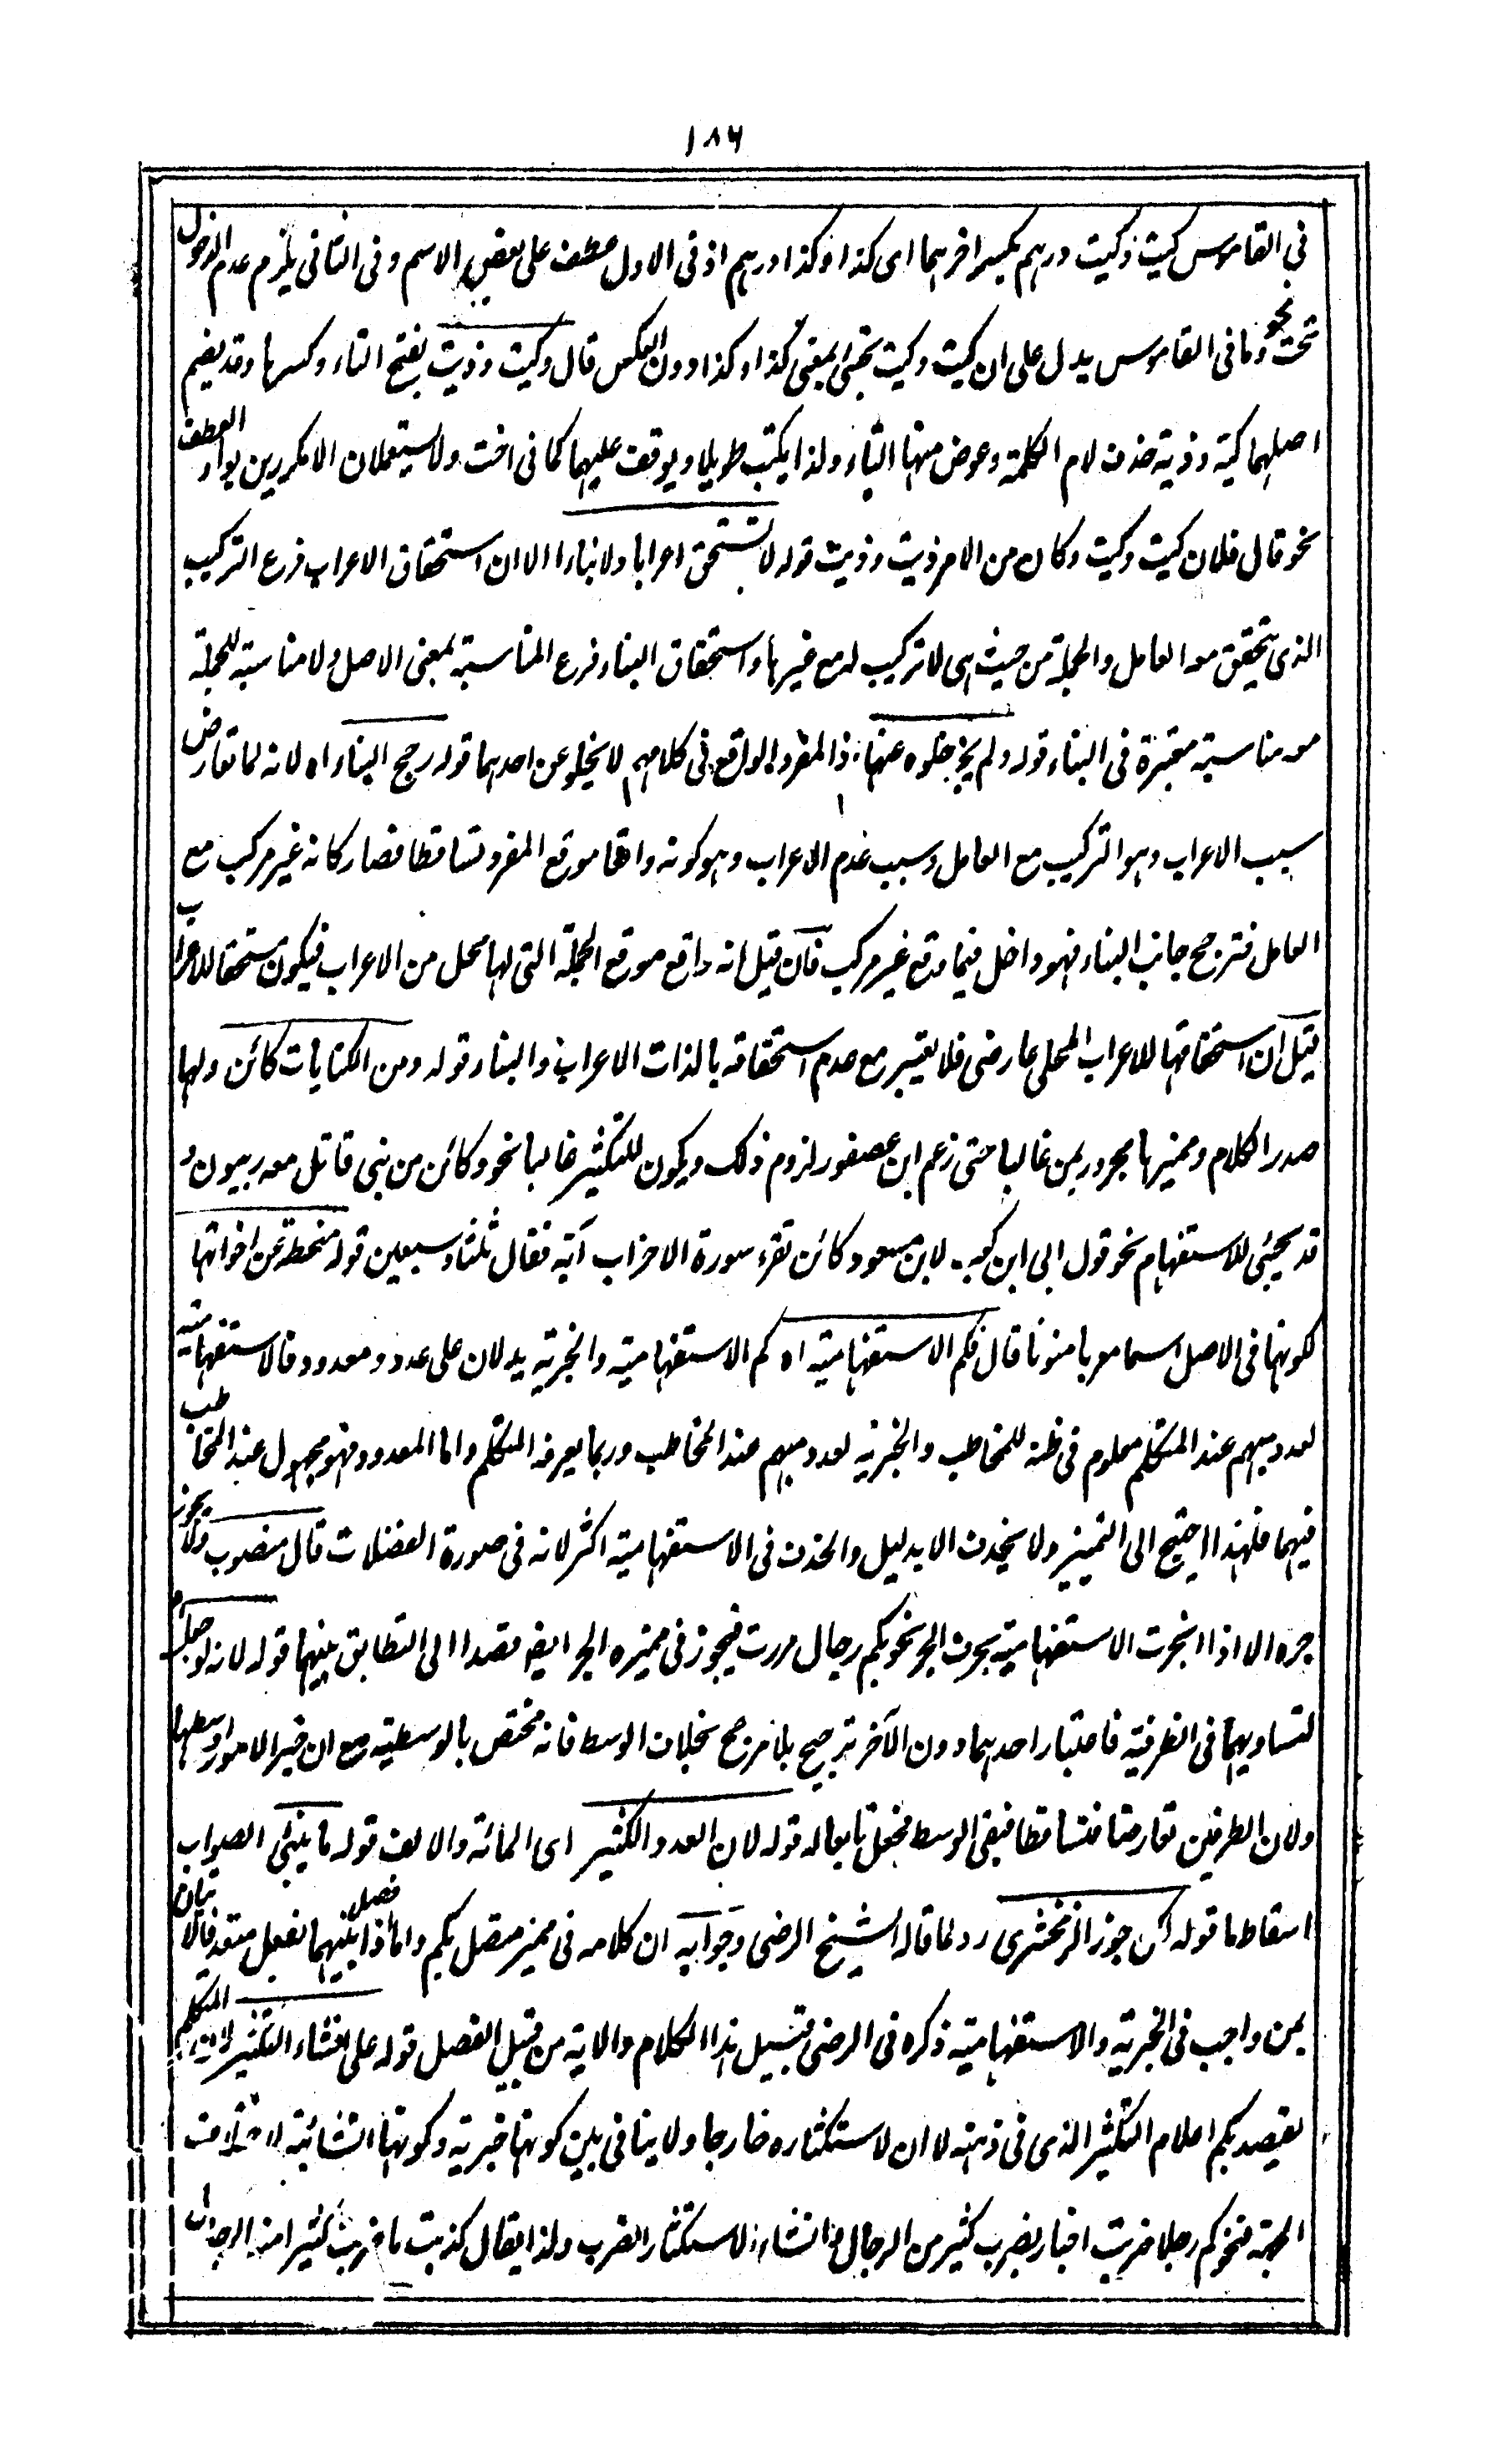 ١٨٦
في القاموس كيت وكيت درهم بكسر اخرهما اى كذا وكذا درهم اذ فى الاول عطف على بعض الاسم وفى الثانى يلزم عدم الدخول
تحت نحو وما فى القاموس يدل على ان كيت وكيت يجئ بمعنى كذا وكذا دون العكس قال وكيت وذيت بفتح التاء وكسرها وقد يضم
اصلهما كية وذية حذفت لام الكلمة وعوض منها التاء ولذا يكتب طويلا ويوقف عليهما كما فى اخت ولا يستعملان الا مكررين بواو العطف
نحو قال فلان كيت وكيت وكان من الامر ذيت وذيت قوله لا تستحق اعرابا ولا بناء الا ان استحقاق الاعراب فرع التركيب
الذى يتحقق معه العامل والجملة من حيث هى لا تركيب له مع غيرها واستحقاق البناء فرع المناسبة لمعنى الاصل ولا مناسبة للجملة
معه مناسبة معتبرة فى البناء قوله ولم يجز خلوه عنها اذ المفرد الواقع فى كلامهم لا يخلو عن احدهما قوله رجح البناء اه لانه لما تعارض
سبب الاعراب وهو التركيب مع العامل وسبب عدم الاعراب وهو كونه واقعا موقع المفرد تساقطا فصار كانه غير مركب مع
العامل فترجح جانب البناء فهو داخل فيما وقع غير مركب فان قيل انه واقع موقع الجملة التى لها محل من الاعراب فيكون مستحقا للاعراب
قيل ان استحقاقها للاعراب المحلى عارضى فلا يعتبر مع عدم استحقاقه بالذات الاعراب والبناء قوله ومن الكنايات كائن ولها
صدر الكلام ومميزها مجرور بمن غالبا حتى زعم ابن عصفور لزوم ذلك ويكون للتكثير غالبا نحو وكائن من نبى قاتل معه ربيون و
قد يجئ للاستفهام نحو قول ابى ابن كعب لابن مسعود كائن تقرء سورة الاحزاب آية فقال ثلثا وسبعين قوله منحطة عن اخواتها
لكونها فى الاصل اسما معربا منونا قال فكم الاستفهامية اه كم الاستفهامية والخبرية يدلان على عدد ومعدود فالاستفهامية
لعدد مبهم عند المتكلم معلوم فى ظنه للمخاطب والخبرية لعدد مبهم عند المخاطب وربما يعرفه المتكلم واما المعدود فهو مجهول عند المخاطب
فيهما فلهذا احتيج الى التمييز ولا يحذف الا بدليل والحذف فى الاستفهامية اكثر لانه فى صورة الفضلات قال منصوب ولا يجوز
جره الا اذا انجرت الاستفهامية بحرف الجر نحو بكم رجال مررت فيجوز فى مميزه الجر ايضا قصدا الى التطابق بينهما قوله لانه لو جعل
لتساويهما فى الطرفية فاعتبار احدهما دون الآخر ترجيح بلا مرجح بخلاف الوسط فانه مختص بالوسطية مع ان خير الامور اوسطها
ولان الطرفين تعارضا فتساقطا فبقى الوسط فجعل تابعا له قوله لان العدد الكثير اى المائة والالف قوله ما ينبئ الصواب
اسقاط ما قوله لكن جوز الزمخشرى رد لما قاله الشيخ الرضى وجوابه ان كلامه فى مميز متصل بكم واما اذا فصل بينهما بفعل متعد فالاتيان
بمن واجب فى الخبرية والاستفهامية ذكره فى الرضى قبيل هذا الكلام والاية من قبيل الفصل قوله على انشاء التكثير المتكلم
يقصد بكم اعلام التكثير الذى فى ذهنه لا ان لاستكثاره خارجا ولا ينافى بين كونها خبرية وكونها انشائية
الجهة فنحو كم رجلا ضربت اخبار بضرب كثير من الرجال وانشاء لاستكثار الضرب ولذا يقال كذبت ما ضربت كثيرا من الرجال